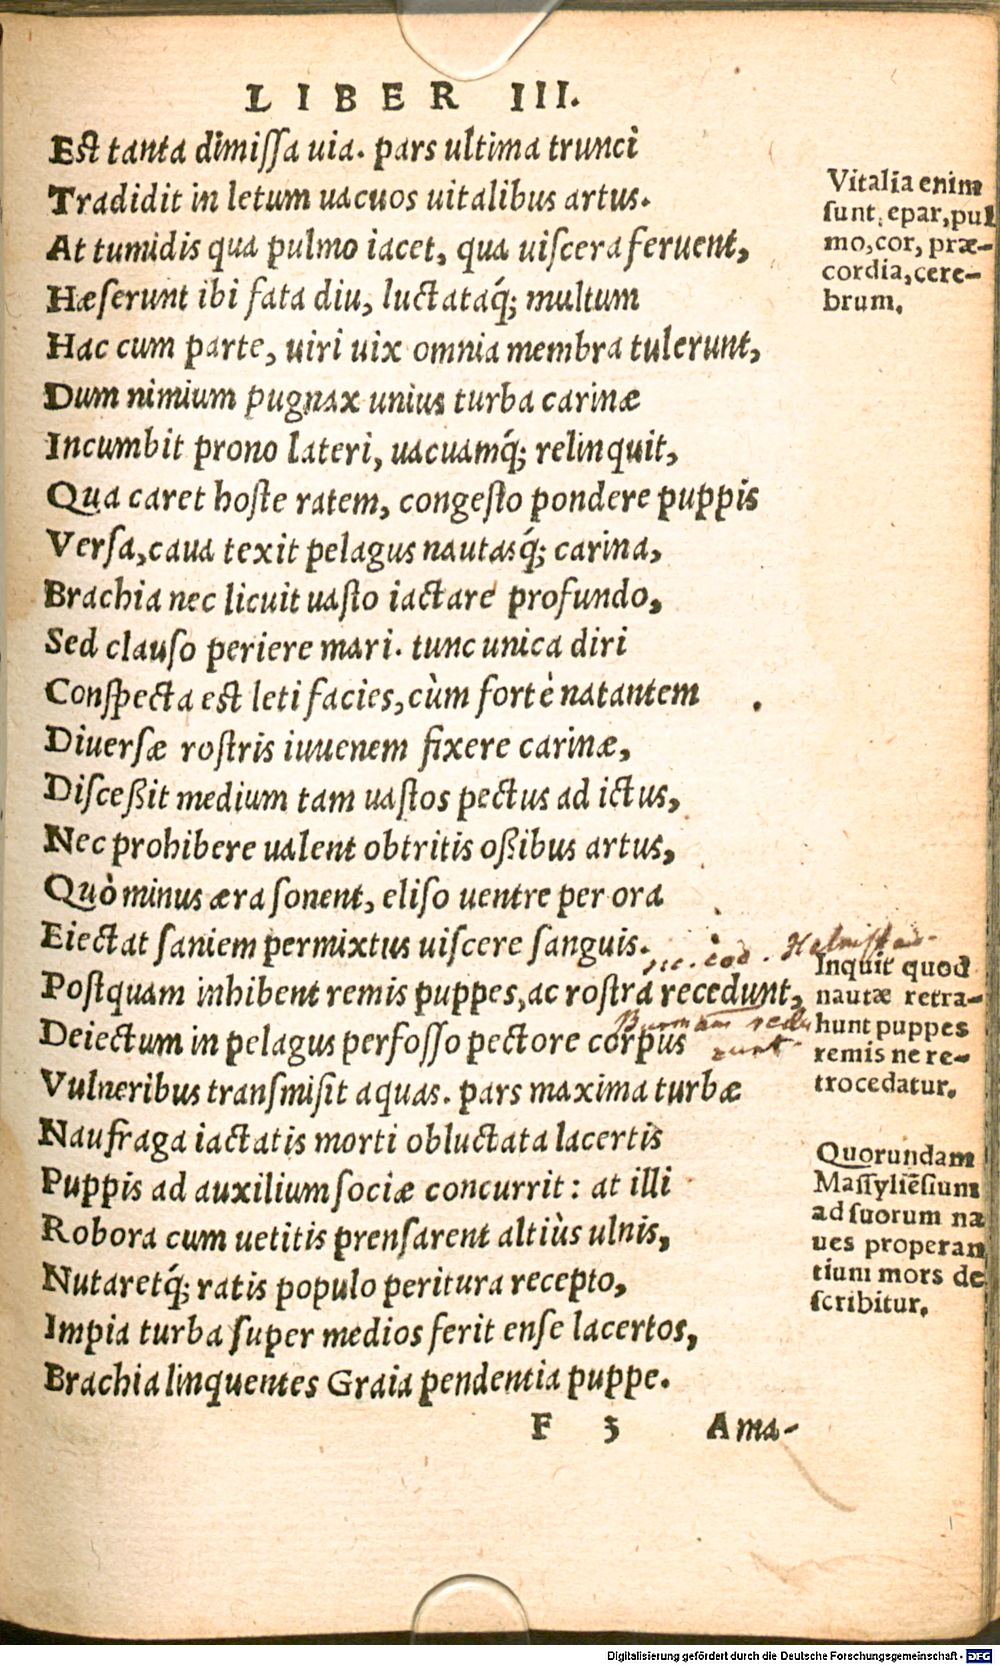 LIBER III.
Est tanta dimissa uia. pars ultima trunci
Tradidit in letum uacuos uitalibus artus.
At tumidis qua pulmo iacet, qua uiscera feruent,
Hæserunt ibi fata diu, luctataq́; multum
Hac cum parte, uiri uix omnia membra tulerunt,
Dum nimium pugnax unius turba carinæ
Incumbit prono lateri, uacuamq́; relinquit,
Qua caret hoste ratem, congesto pondere puppis
Versa, caua texit pelagus nautasq́; carina,
Brachia nec licuit uasto iactare profundo,
Sed clauso periere mari. tunc unica diri
Conspecta est leti facies, cùm fortè natantem
Diuersæ rostris iuuenem fixere carinæ,
Disceßit medium tam uastos pectus ad ictus,
Nec prohibere ualent obtritis oßibus artus,
Quò minus æra sonent, eliso uentre per ora
Eiectat saniem permixtus uiscere sanguis.
Postquam inhibent remis puppes, ac rostra recedunt,
Deiectum in pelagus perfosso pectore corpus
Vulneribus transmisit aquas. pars maxima turbæ
Naufraga iactatis morti obluctata lacertis
Puppis ad auxilium sociæ concurrit: at illi
Robora cum uetitis prensarent altiùs ulnis,
Nutaretq́; ratis populo peritura recepto,
Impia turba super medios ferit ense lacertos,
Brachia linquentes Graia pendentia puppe.
F 3 Ama-
Vitalia enim
sunt, epar, pul
mo, cor, præ-
cordia, cere-
brum.
cod.
Inquit quod
nautæ retra-
hunt puppes
remis ne re-
trocedatur.
Quorundam
Massyliēsium
ad suorum na
ues properan
tium mors de
scribitur.
Digitalisierung gefördert durch die Deutsche Forschungsgemeinschaft - DFG